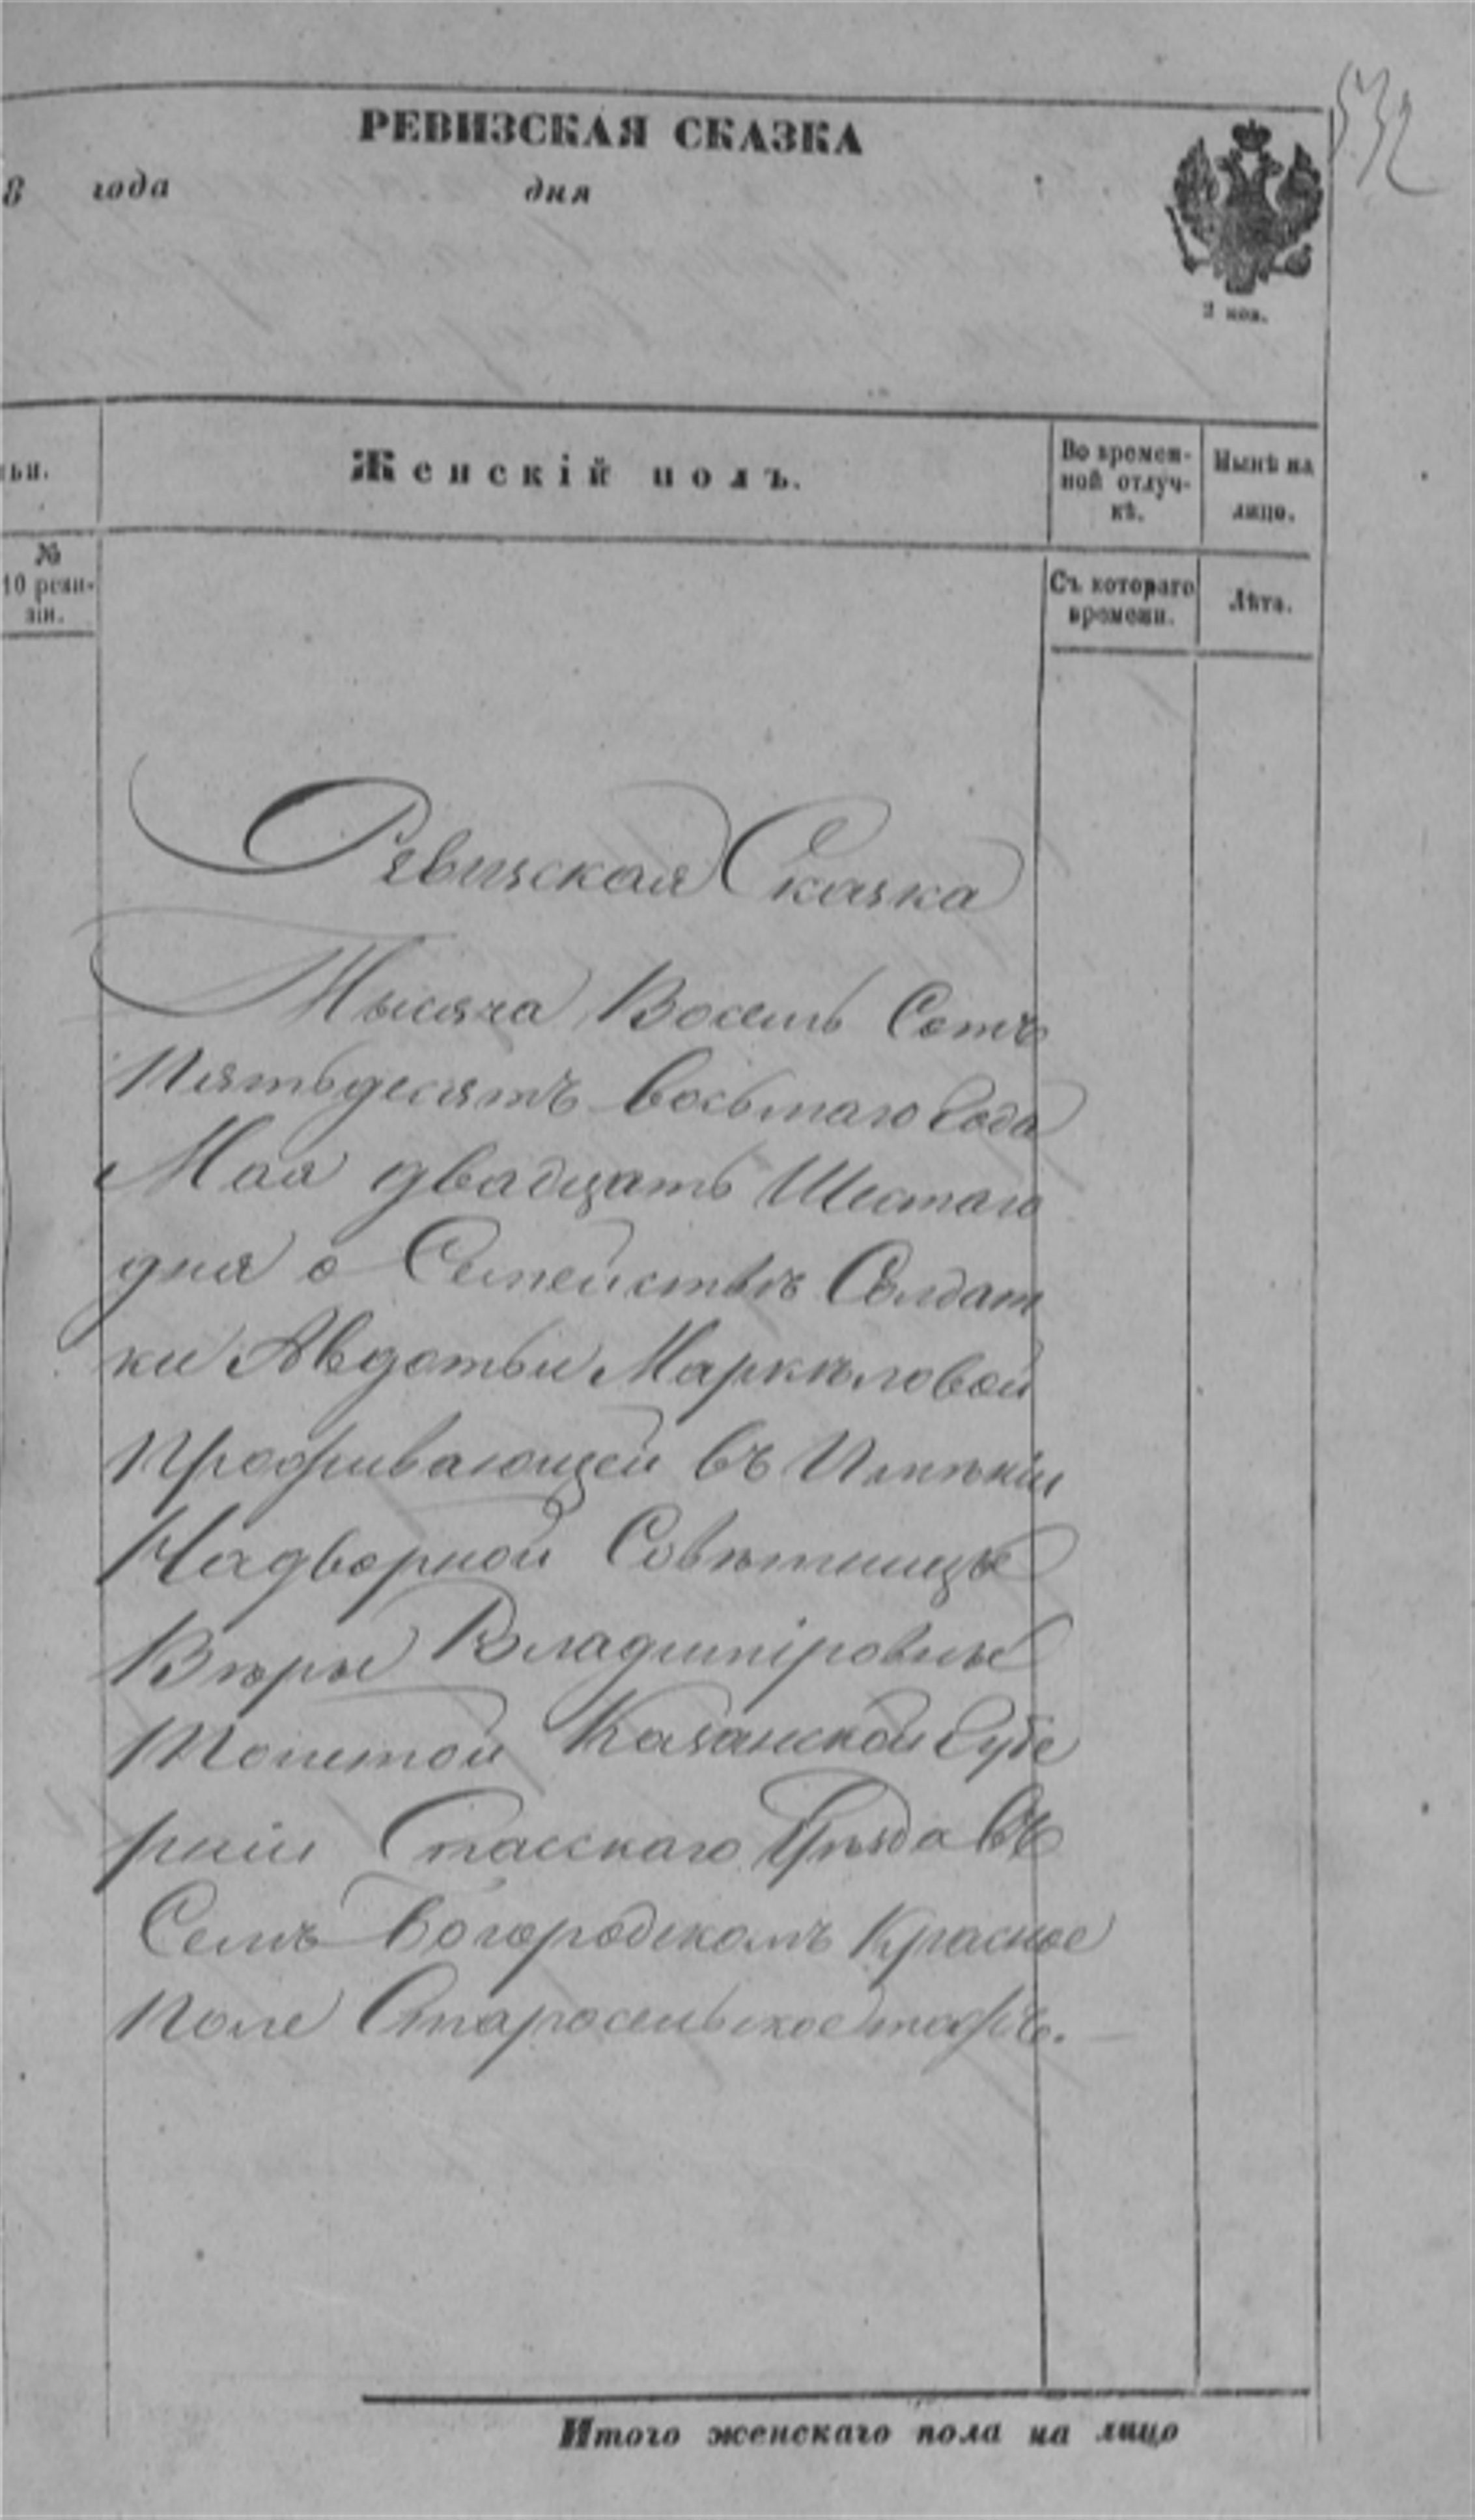 532
РЕВИЗСКАЯ СКАЗКА
8 года дня
2 коп.
ьи. Женскій полъ. Во времен-ной отлуч-кѣ. Нынѣ на лицо.
№ 10 реви-зіи. Съ котораго времени. Лѣта.
Ревизская Сказка
Тысяча Восемь Сотъ
Пятьдесятъ восьмаго Года
Мая двадцать Шестаго
дня о Семействѣ Солдат
ки Авдотьи Маркѣловой
Проживающей въ Имѣніи
Надворной Совѣтницы
Вѣры Владиміровны
Молоствовой Казанской Губе
рніи Спасскаго Уѣзда въ
Селѣ Богородскомъ Красное
Поле Старосельское
Итого женскаго пола на лицо